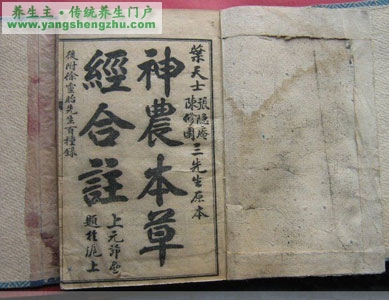 养生主·传统养生门户
www.yangshengzhu.com
葉天士
張隱庵
陳修園
三先生原本
神農本草
經合註
後附徐靈胎先生百種錄
上元節
題於滬上